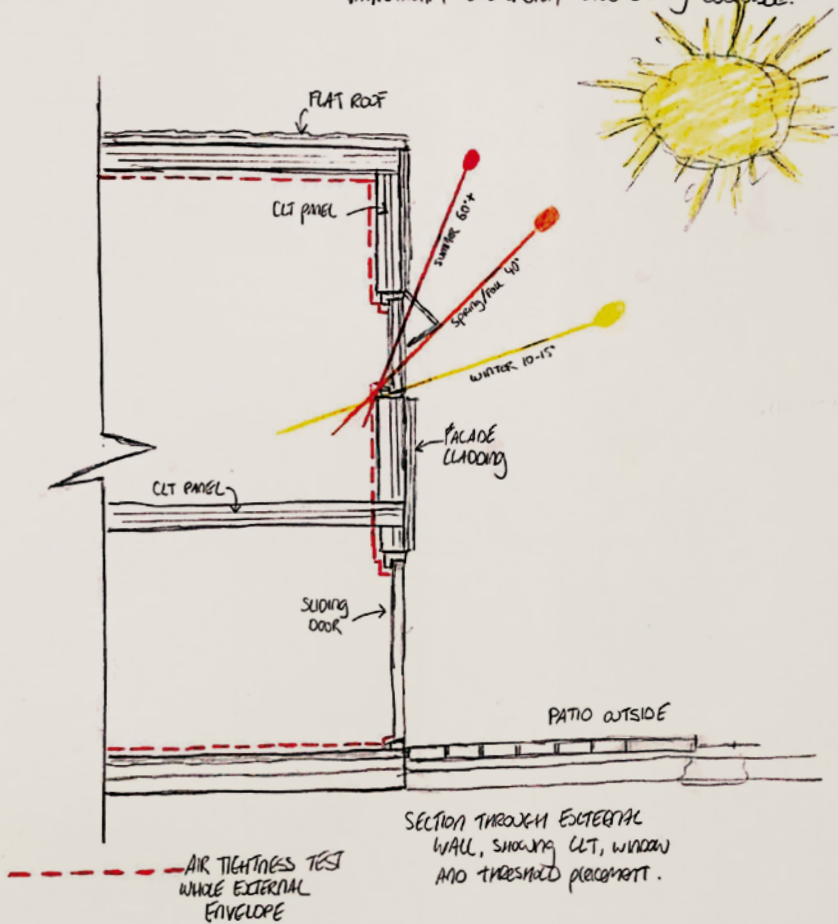 FLAT ROOF
CLT PANEL
SUMMER 60°+
SPRING/FALL 40°
WINTER 10-15°
FACADE
CLADDING
CLT PANEL
SLIDING
DOOR
PATIO OUTSIDE
SECTION THROUGH EXTERNAL
WALL, SHOWING CLT, WINDOW
AND THRESHOLD PLACEMENT.
AIR TIGHTNESS TEST
WHOLE EXTERNAL
ENVELOPE